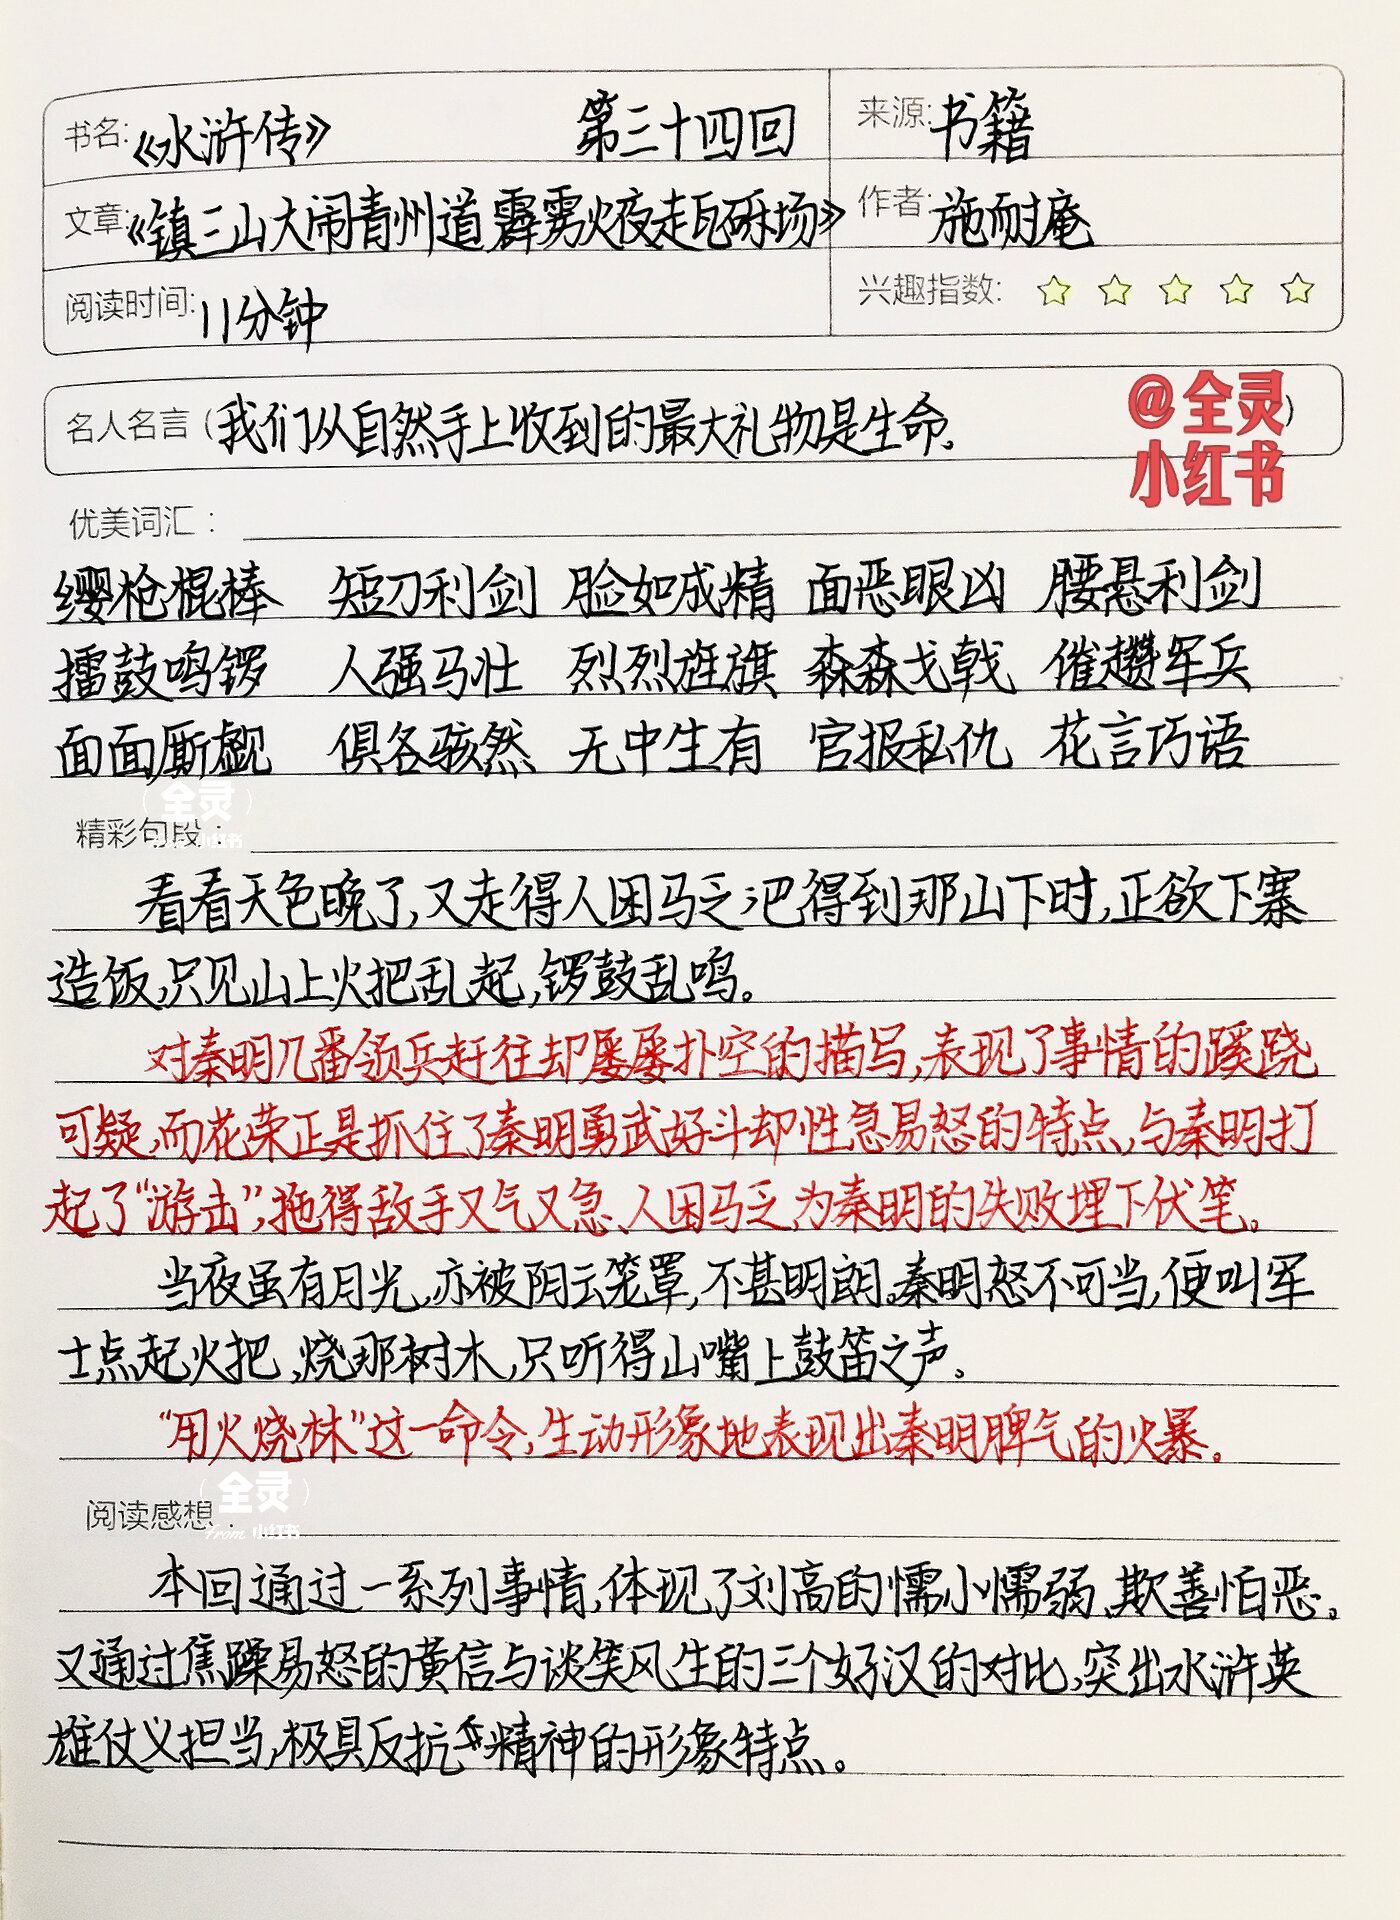 书名:《水浒传》 第三十四回 来源:书籍
文章:《镇三山大闹青州道 霹雳火夜走瓦砾场》 作者:施耐庵
阅读时间:11分钟 兴趣指数:
@全灵
名人名言(我们从自然手上收到的最大礼物是生命。)
小红书
优美词汇:
缨枪棍棒 短刀利剑 脸如成精 面恶眼凶 腰悬利剑
擂鼓鸣锣 人强马壮 烈烈旌旗 森森戈戟 催趱军兵
面面厮觑 俱各骇然 无中生有 官报私仇 花言巧语
全灵
精彩句段: 小红书
看看天色晚了,又走得人困马乏;巴得到那山下时,正欲下寨
造饭,只见山上火把乱起,锣鼓乱鸣。
对秦明几番领兵赶往却屡屡扑空的描写,表现了事情的蹊跷
可疑,而花荣正是抓住了秦明勇武好斗却性急易怒的特点,与秦明打
起了“游击”,拖得敌手又气又急、人困马乏,为秦明的失败埋下伏笔。
当夜虽有月光,亦被阴云笼罩,不甚明朗。秦明怒不可当,便叫军
士点起火把,烧那树木,只听得山嘴上鼓笛之声。
“用火烧林”这一命令,生动形象地表现出秦明脾气的火暴。
全灵
阅读感想: From 小红书
本回通过一系列事情,体现了刘高的懦小懦弱、欺善怕恶。
又通过焦躁易怒的黄信与谈笑风生的三个好汉的对比,突出水浒英
雄仗义担当,极具反抗精神的形象特点。